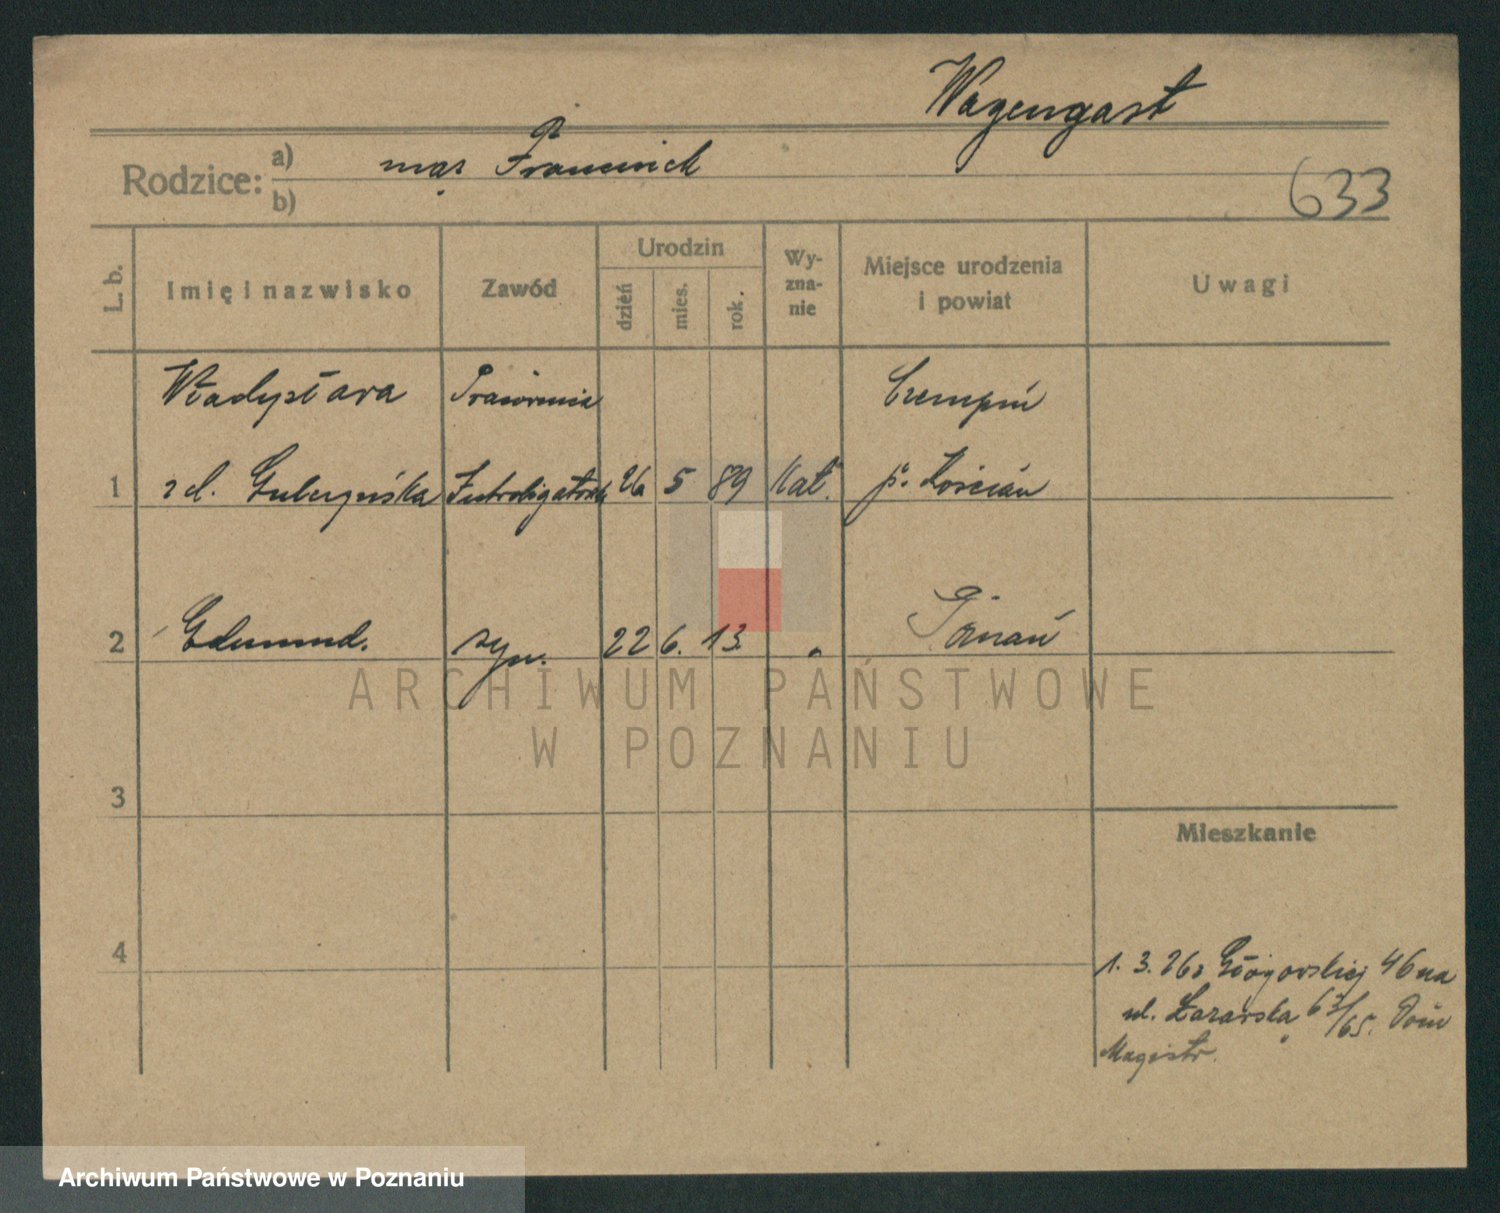 Wagengast
Rodzice:
a) mąż Franciszek
b)
633
L. b.
Imię i nazwisko
Zawód
Urodzin
dzień
mies.
rok.
Wy-
zna-
nie
Miejsce urodzenia
i powiat
Uwagi
Władysława
Czempiń
1
z d.
26
5
89
Kat.
p. Kościan
2
Edmund.
syn.
22
6.
13.
"
Poznań
3
4
Mieszkanie
1. 3. 26 z Głogowskiej 46 na
ul. Łazarską 63/65. Dom
Magistr.
ARCHIWUM PAŃSTWOWE
W POZNANIU
Archiwum Państwowe w Poznaniu